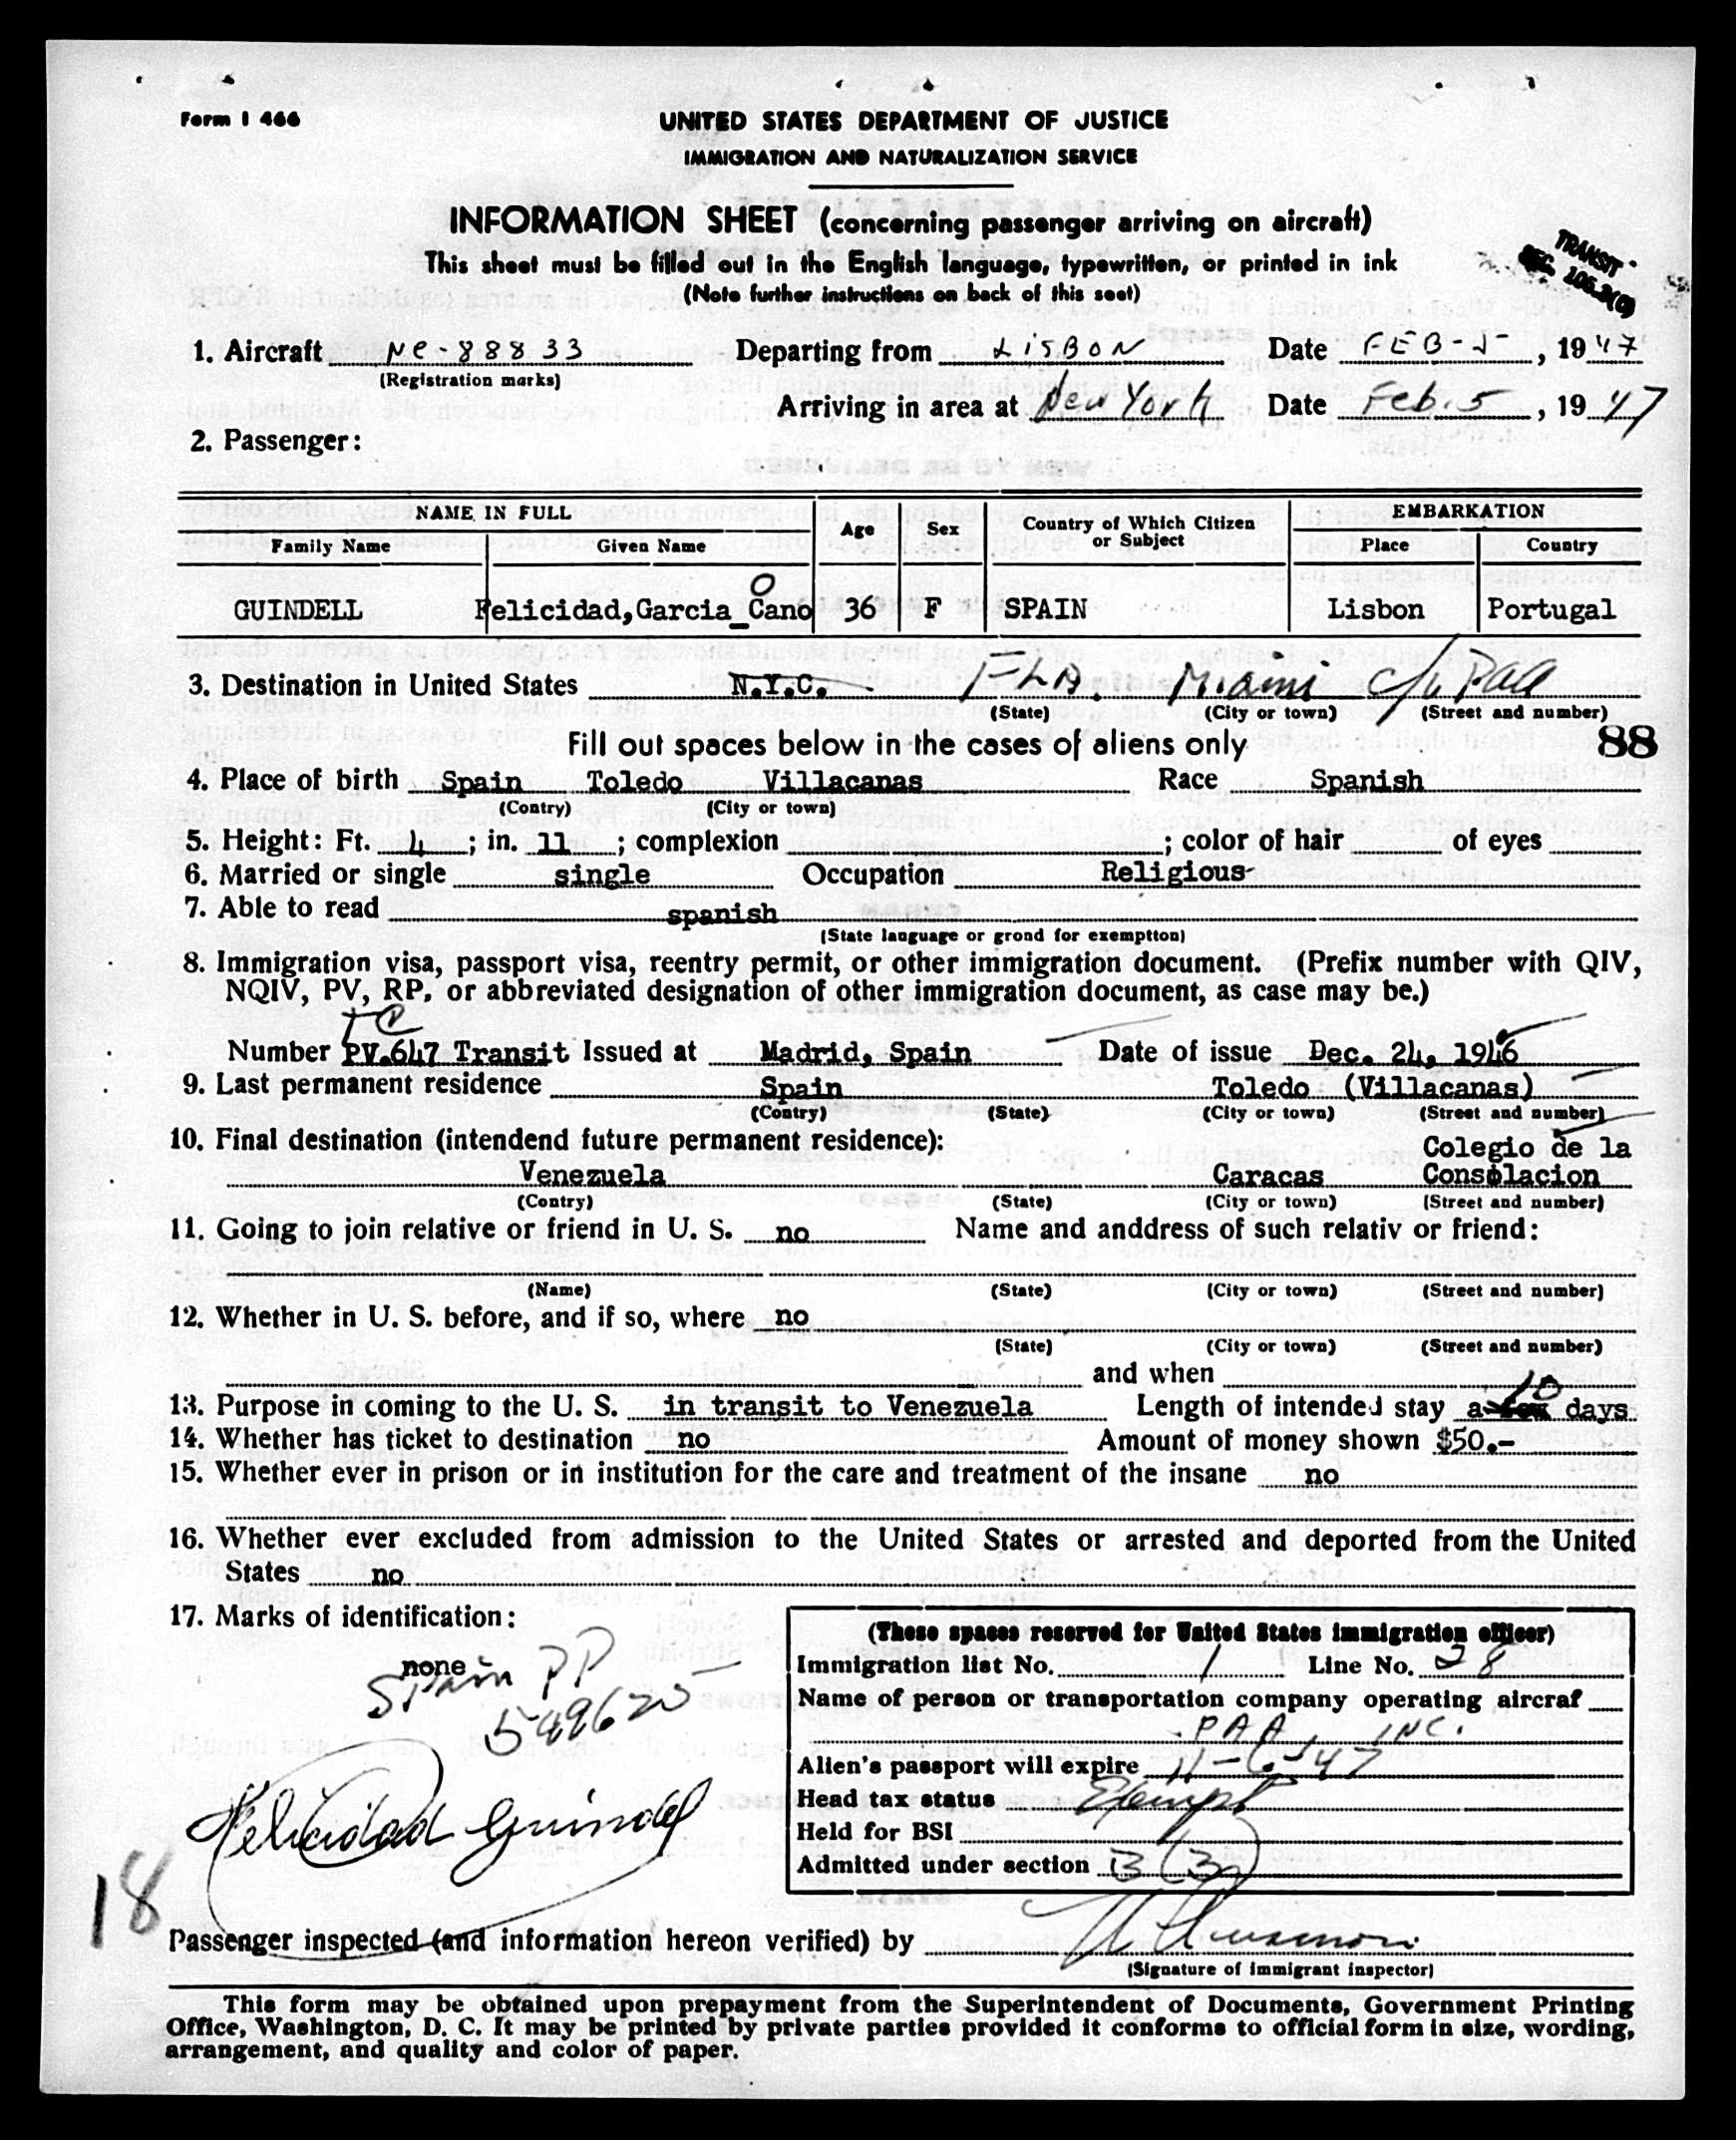 Form I 466
UNITED STATES DEPARTMENT OF JUSTICE
IMMIGRATION AND NATURALIZATION SERVICE
INFORMATION SHEET (concerning passenger arriving on aircraft)
This sheet must be filled out in the English language, typewritten, or printed in ink
(Note further instructions on back of this seet)
TRANSIT
SEC. 106.3(c)
1. Aircraft NC-88833 Departing from LISBON Date FEB-5-, 1947
(Registration marks)
Arriving in area at New York Date Feb. 5, 1947
2. Passenger:
NAME IN FULL Age Sex Country of Which Citizen or Subject EMBARKATION
Family Name Given Name Place Country
O
GUINDELL Felicidad,Garcia_Cano 36 F SPAIN Lisbon Portugal
3. Destination in United States N.Y.C. FLA. Miami c/o PAA
(State) (City or town) (Street and number)
Fill out spaces below in the cases of aliens only 88
4. Place of birth Spain Toledo Villacanas Race Spanish
(Contry) (City or town)
5. Height: Ft. 4 ; in. 11 ; complexion ; color of hair of eyes
6. Married or single single Occupation Religious
7. Able to read spanish
(State language or grond for exemptton)
8. Immigration visa, passport visa, reentry permit, or other immigration document. (Prefix number with QIV,
NQIV, PV, RP, or abbreviated designation of other immigration document, as case may be.)
TC
Number PV.647 Transit Issued at Madrid, Spain Date of issue Dec. 24, 1946
9. Last permanent residence Spain Toledo (Villacanas)
(Contry) (State) (City or town) (Street and number)
10. Final destination (intendend future permanent residence):
Colegio de la
Venezuela Caracas Consolacion
(Contry) (State) (City or town) (Street and number)
11. Going to join relative or friend in U. S. no Name and anddress of such relativ or friend:
(Name) (State) (City or town) (Street and number)
12. Whether in U. S. before, and if so, where no
(State) (City or town) (Street and number)
and when
10
13. Purpose in coming to the U. S. in transit to Venezuela Length of intended stay a few days
14. Whether has ticket to destination no Amount of money shown $50.-
15. Whether ever in prison or in institution for the care and treatment of the insane no
16. Whether ever excluded from admission to the United States or arrested and deported from the United
States no
17. Marks of identification:
none
Spain PP
549625
Felicidad Guindel
18
(These spaces reserved for United States immigration officer)
Immigration list No. 1 Line No. 28
Name of person or transportation company operating aircraf
PAA INC.
Alien's passport will expire 11-6-47
Head tax status Exempt
Held for BSI
Admitted under section 3(3)
Passenger inspected (and information hereon verified) by
(Signature of immigrant inspector)
This form may be obtained upon prepayment from the Superintendent of Documents, Government Printing
Office, Washington, D. C. It may be printed by private parties provided it conforms to official form in size, wording,
arrangement, and quality and color of paper.